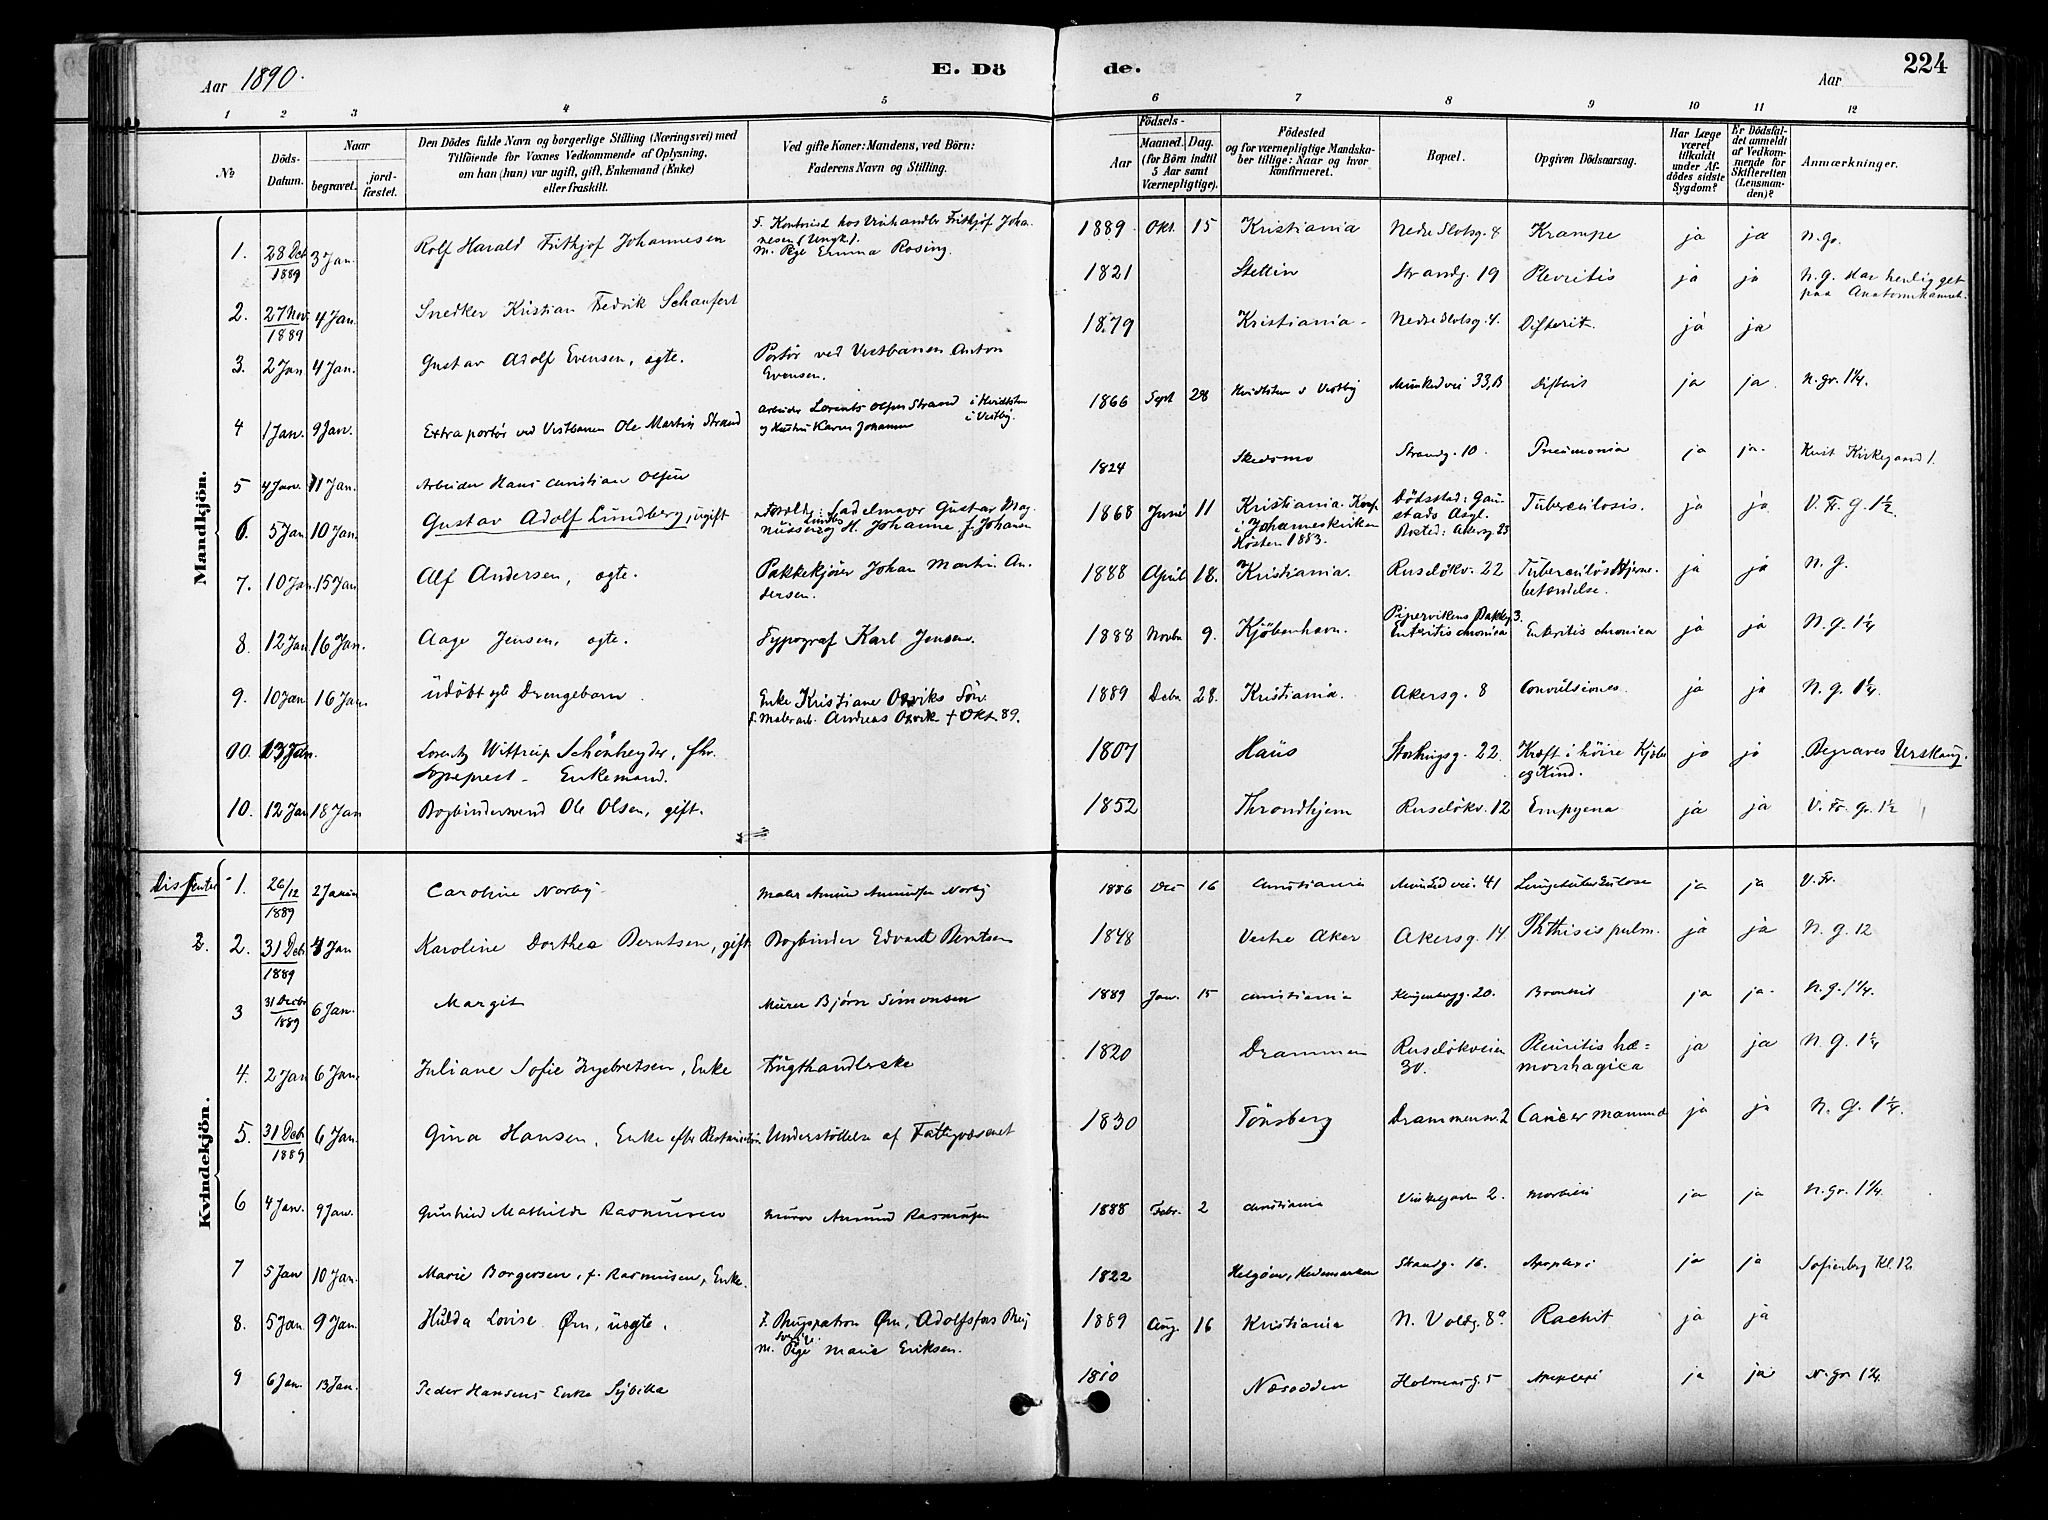 Aar 1890. E. Döde. Aar 224
1 2 3 4 5 6 7 8 9 10 11 12
№
Döds-Datum.
Naar
begravet.
jordfæstet.
Den Dödes fulde Navn og borgerlige Stilling (Næringsvei) med
Tilföiende for Voxnes Vedkommende af Oplysning,
om han (hun) var ugift, gift, Enkemand (Enke)
eller fraskilt.
Ved gifte Koner: Mandens, ved Börn:
Faderens Navn og Stilling.
Födsels-
Aar
Maaned. Dag.
(for Börn indtil
5 Aar samt
Værnepligtige).
Födested
og for værnepligtige Mandskaber tillige: Naar og hvor
konfirmeret.
Bopæl.
Opgiven Dödsaarsag.
Har Læge
været
tilkaldt
under Afdödes sidste
Sygdom?
Er Dödsfaldet anmeldt
af Vedkommende for
Skifteretten
(Lensmanden)?
Anmærkninger.
Mandkjön.
1. 28 Dec 1889 3 Jan. Rolf Harald Frithjof Johannesen F. Kontorist hos Vinhandler Frithjof Johannesen (Ungk.). M. Pige Emma Rosing. 1889. Okt. 15 Kristiania Nedre Slotsg. 4 Krampe ja ja N. gr.
2. 27 Nov. 1889 4 Jan. Snedker Kristian Fredrik Schaufert 1821 Stettin Strandg. 19 Plevritis ja ja N. g. Har henligget paa Anatomikamret.
3. 2 Jan 4 Jan. Gustav Adolf Evensen, ægte. Portør ved Vestbanen Anton Evensen. 1879 Kristiania. Nedre Slotsg. 4. Difterit. ja ja
4 1 Jan. 9 Jan. Extraportør ved Vestbanen Ole Martin Strand Arbeider Lorents Olsen Strand og Hustru Karen Johanne i Hvidtsten i Vestby. 1866 Sept 28 Hvidtsten i Vestby Munkedvei 33,B Difterit ja ja. N. gr. 1¼.
5 4 Jan. 11 Jan. Arbeider Hans Christian Olsen 1824 Skedsmo Strandg. 10. Pneumonia ja ja. Krist Kirkegaard 1.
6. 5 Jan. 10 Jan. Gustav Adolf Lundberg, ugift Forældre: Sadelmager Gustav Magnussen Lundberg H. Johanne f. Johansen 1868 Juni 11 Kristiania. Konf. i Johanneskirken Høsten 1883. Dödsstad: Gaustads Asyl. Bosted: Akersg 23 Tuberculosis. ja ja V. Fr. G. 1½
7. 10 Jan. 15 Jan. Alf Andersen, ægte. Pakkekjører Johan Martin Andersen. 1888 April 18. Kristiania. Ruseløkv. 22 Tuberculøs Hjernebetændelse. ja ja N. g.
8 12 Jan 16 Jan. Aage Jensen, ægte. Typograf Karl Jensen. 1888 Novbr 9. Kjøbenhavn. Pipervikens Bakke 3. Enteritis chronica Enteritis chronica ja ja N. g. 1¼
9. 10 Jan 16 Jan. Udøbt egte Drengebarn. Enke Kristiane Orviks Søn. F. Malerarb. Andreas Orvik † Okt 89. 1889 Debr 28. Kristiania. Akersg. 8 Convulsiones. ja ja N. g. 1¼.
00. 13 Jan. Lorentz Wittrup Schönheyder, fhv. Sogneprest. Enkemand. 1807 Haus Storthingsg. 22. Kræft i høire Kjæbe og Kind. ja ja Begraves Urskoug.
10. 12 Jan 18 Jan Bogbindersvend Ole Olsen, gift. 1852 Throndhjem Ruseløkv. 12 Empyema ja ja V. Fr. gr. 1½
Kvindekjön.
Dissenter 1. 26/12 1889 2 Januar Caroline Norby Maler Amund Amundsen Norby 1886 Dec 16 Christiania Munkedvei. 41 Lungetuberkulose ja ja V. Fr.
2. 2. 31 Debr 1889 4 Jan Karoline Dorthea Berntsen, gift Bogbinder Edvard Berntsen 1848 Vestre Aker Akersg. 14 Phthisis pulm. ja ja N. g. 12
3 31 Decbr 1889 6 Jan. Margit Murer Bjørn Simonsen 1889 Jan. 15 Christiania Klingenbergg. 20. Bronkit ja ja. N. g. 1¼.
4. 2 Jan 6 Jan. Juliane Sofie Ingebretsen, Enke Frugthandlerske 1820 Drammen Ruseløkveien 30. Pleuritis hæmorrhagica ja ja N. g. 1¼
5. 31 Debr 1889 6 Jan. Gina Hansen, Enke efter Understøttelse af Fattigvæsenet 1830 Tönsberg Drammensv. 2 Cancer mammæ ja ja N. G. 1¼.
6 4 Jan. 9 Jan. Mathilde Rasmussen Murer Amund Rasmussen 1888 Febr. 2 Christiania 2. Morbilli ja ja N. gr. 1¼.
7 5 Jan 10 Jan. Marie Borgersen, f. Rasmussen, Enke. 1822 Helgøen, Hedemarken Strandg. 16. Apoplexi ja ja Sofienberg Kl. 12
8. 5 Jan. 9 Jan. Hulda Lovise Ørn, uægte. F. Brugspatron Ørn, Adolfsfors Brug Sverige. M. Pige Marie Eriksen. 1889 Aug. 16 Kristiania N. Voldg. 8a Rachit ja ja
9 6 Jan. 13 Jan. Peder Hansens Enke Sybilla 1810 Næsodden Holmensg. 5 Apoplexi ja ja N. gr 1¼.